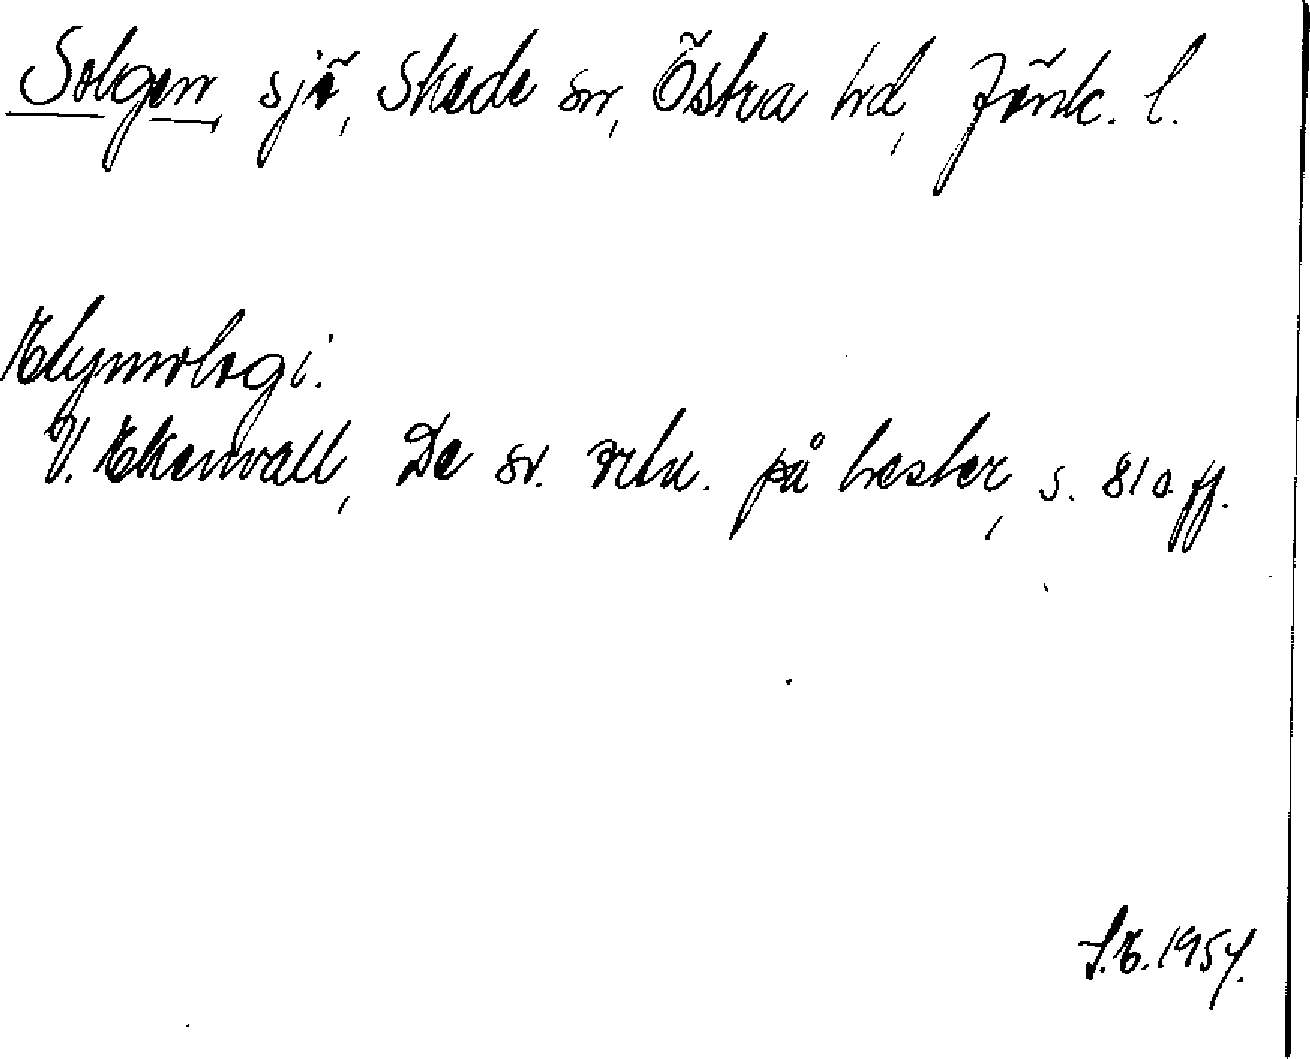 Solgen sjö, Skede sn, Östra hd, Jönk. l.
Etymologi.
V. Ekenvall, De sv. ortn. på hester, s. 81 o. ff.
S.E. 1954.